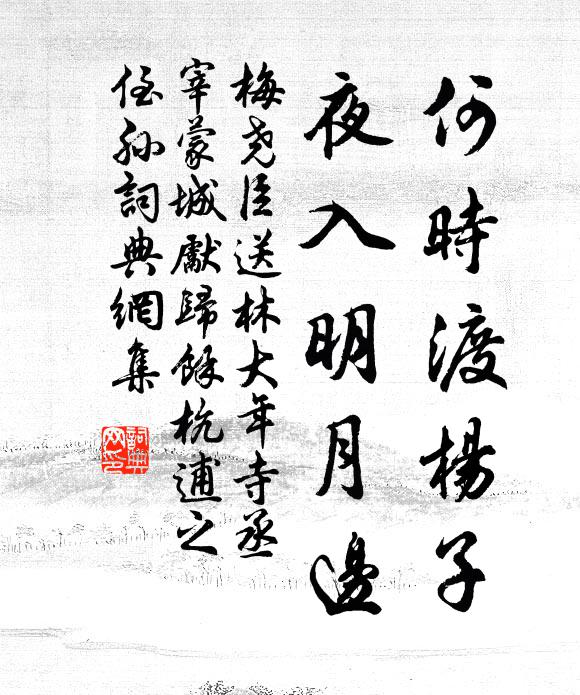 何時渡楊子
夜入明月邊
梅堯臣送林大年寺丞
宰蒙城獻歸餘杭逋之
侄孫詞典網集
詞典
网印